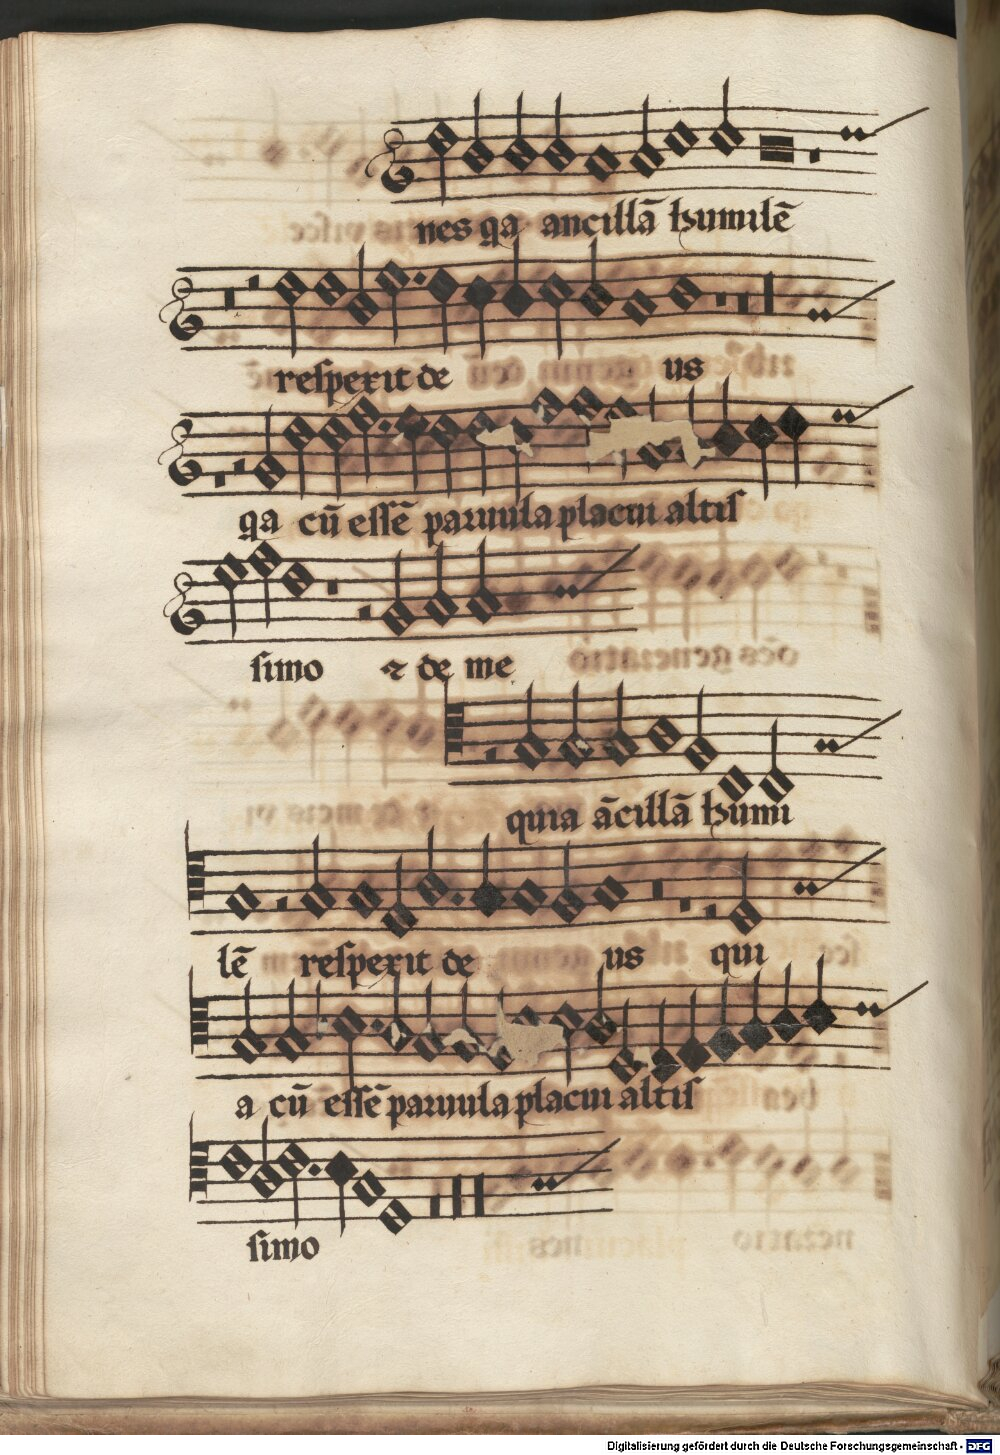 nes qa ancillā humilē
respexit de us
qa cū essē paruula placui altis
simo ⁊ de me
quia ācillā humi
lē respexit de us qui
a cū essē paruula placui altis
simo
Digitalisierung gefördert durch die Deutsche Forschungsgemeinschaft - DFG